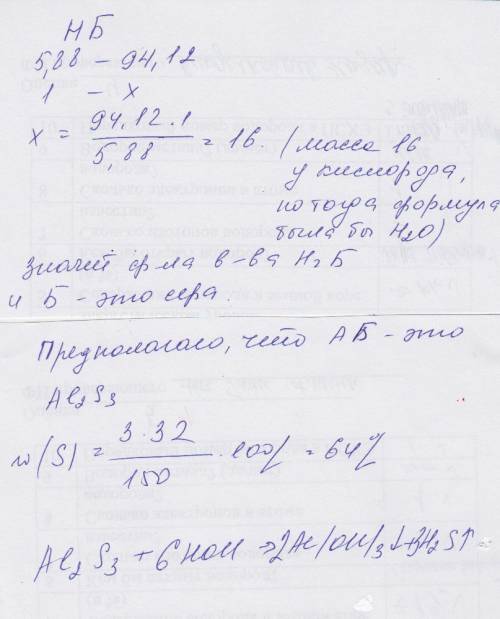 НБ
5,88 – 94,12
1 – x
x = 94,12·1 / 5,88 = 16. (масса 16
у кислорода,
но тогда формула
была бы H2O)
значит ф-ла в-ва H2Б
и Б - это сера.
Предполагаю, что АБ - это
Al2S3
w(S) = 3·32 / 150 · 100% = 64%
Al2S3 + 6HOH → 2Al(OH)3↓ + 3H2S↑